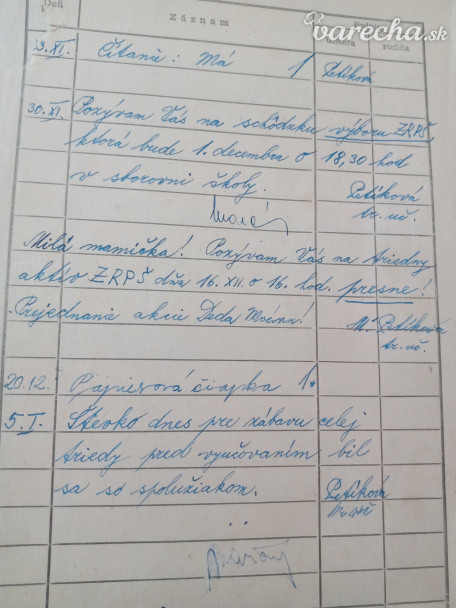 Deň
Záznam
varecha.sk
učiteľa
rodiča
3.XI. Čítanie: Má 1 Petíková
30.XI. Pozývam Vás na schôdzku výboru ZRPŠ,
ktorá bude 1. decembra o 18,30 hod
v sborovni školy. Petíková
tr. uč.
Milá mamička! Pozývam Vás na triedny
aktív ZRPŠ dňa 16.XII. o 16. hod. presne!
Prejednanie akcie Deda Mráza! M. Petíková
tr. uč.
20.12. Papierová čiapka 1*
5.I. Števko dnes pre zábavu celej
triedy pred vyučovaním bil
sa so spolužiakom. Petíková